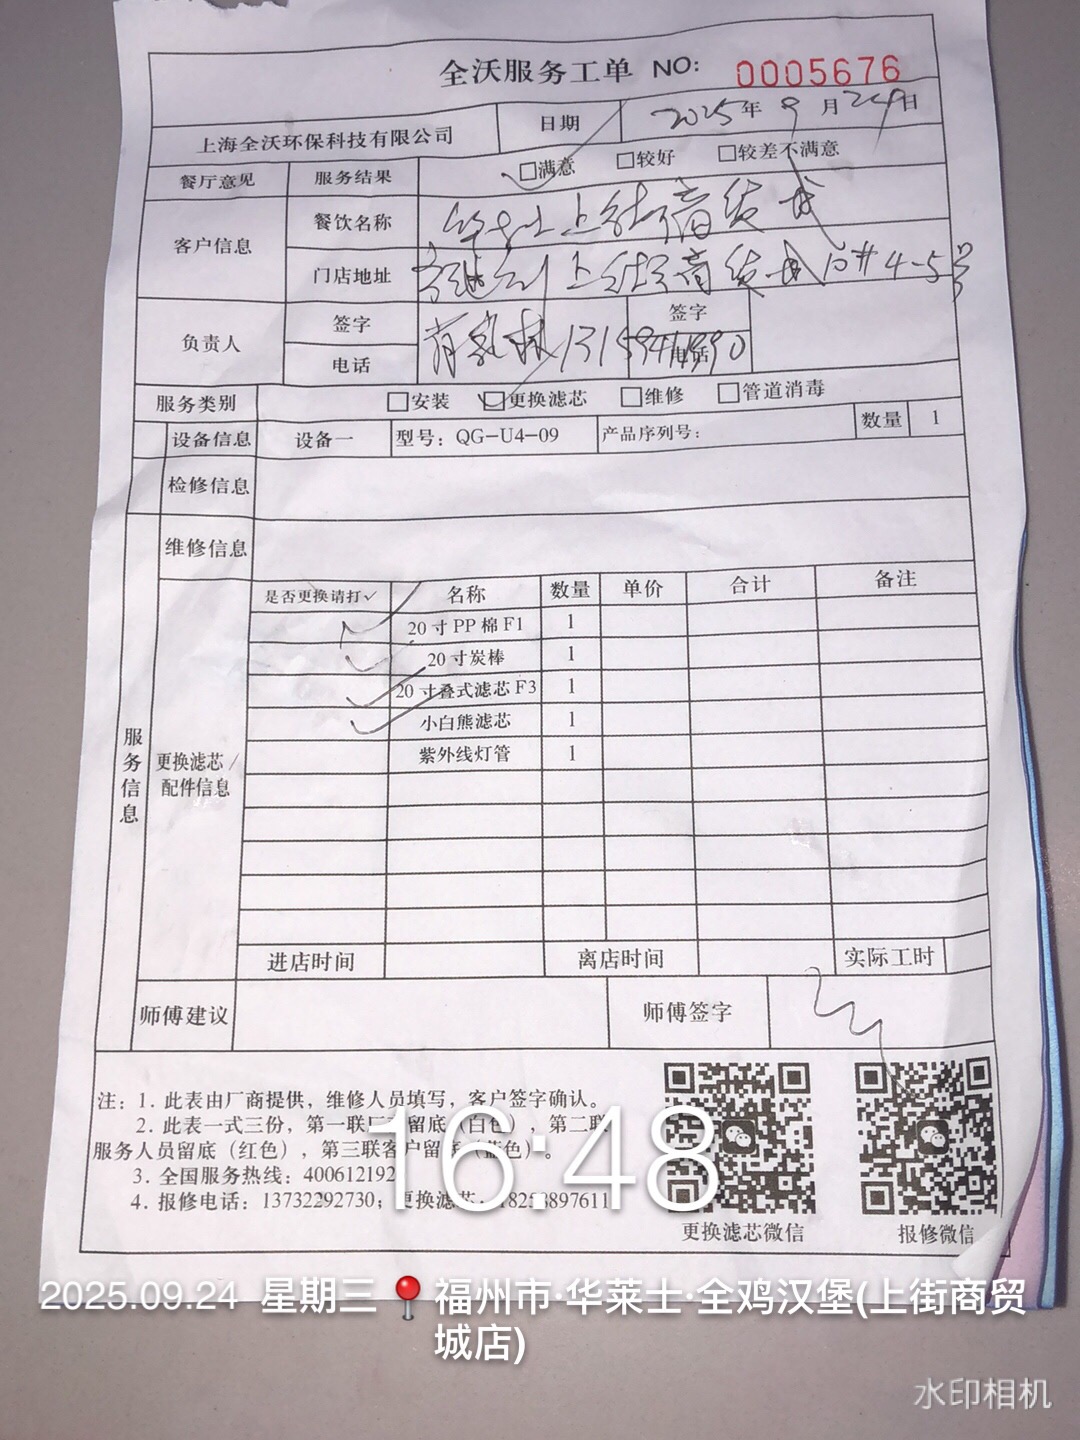 全沃服务工单 NO: 0005676
上海全沃环保科技有限公司 日期 2025年 9月24日
餐厅意见 服务结果 □满意 □较好 □较差不满意
客户信息 餐饮名称 华士上街商贸城
门店地址 上街商贸城10#4-5号
负责人 签字 签字
电话 电话
服务类别 □安装 □更换滤芯 □维修 □管道消毒
设备信息 设备一 型号：QG-U4-09 产品序列号： 数量 1
检修信息
维修信息
是否更换请打✓ 名称 数量 单价 合计 备注
✓ 20寸PP棉F1 1
✓ 20寸炭棒 1
✓ 20寸叠式滤芯F3 1
✓ 小白熊滤芯 1
紫外线灯管 1
服务信息
更换滤芯/
配件信息
进店时间 离店时间 实际工时
师傅建议 师傅签字
注：1. 此表由厂商提供，维修人员填写，客户签字确认。
2. 此表一式三份，第一联 留底（白色），第二联
服务人员留底（红色），第三联客户留底（蓝色）。
3. 全国服务热线：400612192
4. 报修电话：13732292730；更换滤芯：
更换滤芯微信 报修微信
16:48
2025.09.24 星期三 福州市·华莱士·全鸡汉堡(上街商贸
城店)
水印相机